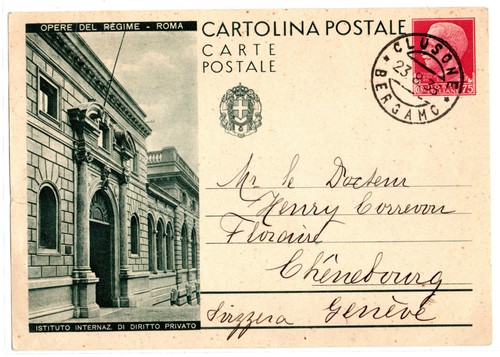 OPERE DEL REGIME - ROMA
CARTOLINA POSTALE
CARTE
POSTALE
CLUSONE
BERGAMO
75
Mr le Docteur
Henry Correvon
Floraire
Chênebourg
Svizzera Genève
ISTITUTO INTERNAZ. DI DIRITTO PRIVATO